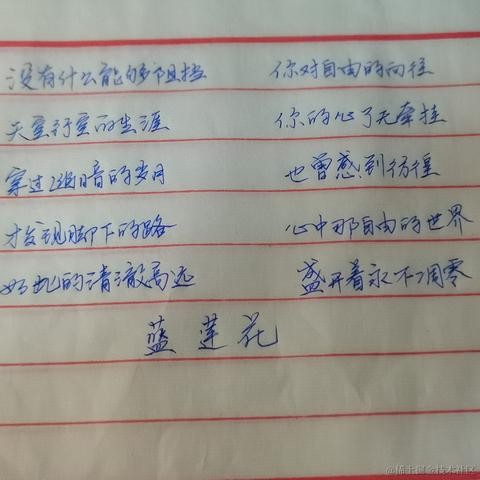 没有什么能够阻挡 你对自由的向往
天空行空的生涯 你的心了无牵挂
穿过幽暗的岁月 也曾感到彷徨
才发现脚下的路 心中那自由的世界
如此的清澈高远 盛开着永不凋零
蓝莲花
@稀土掘金技术社区